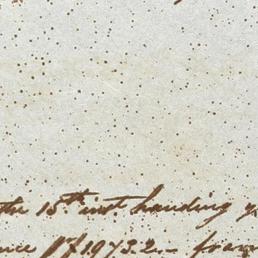 the 18th inst. handing y
nce pf 1973.2.- from